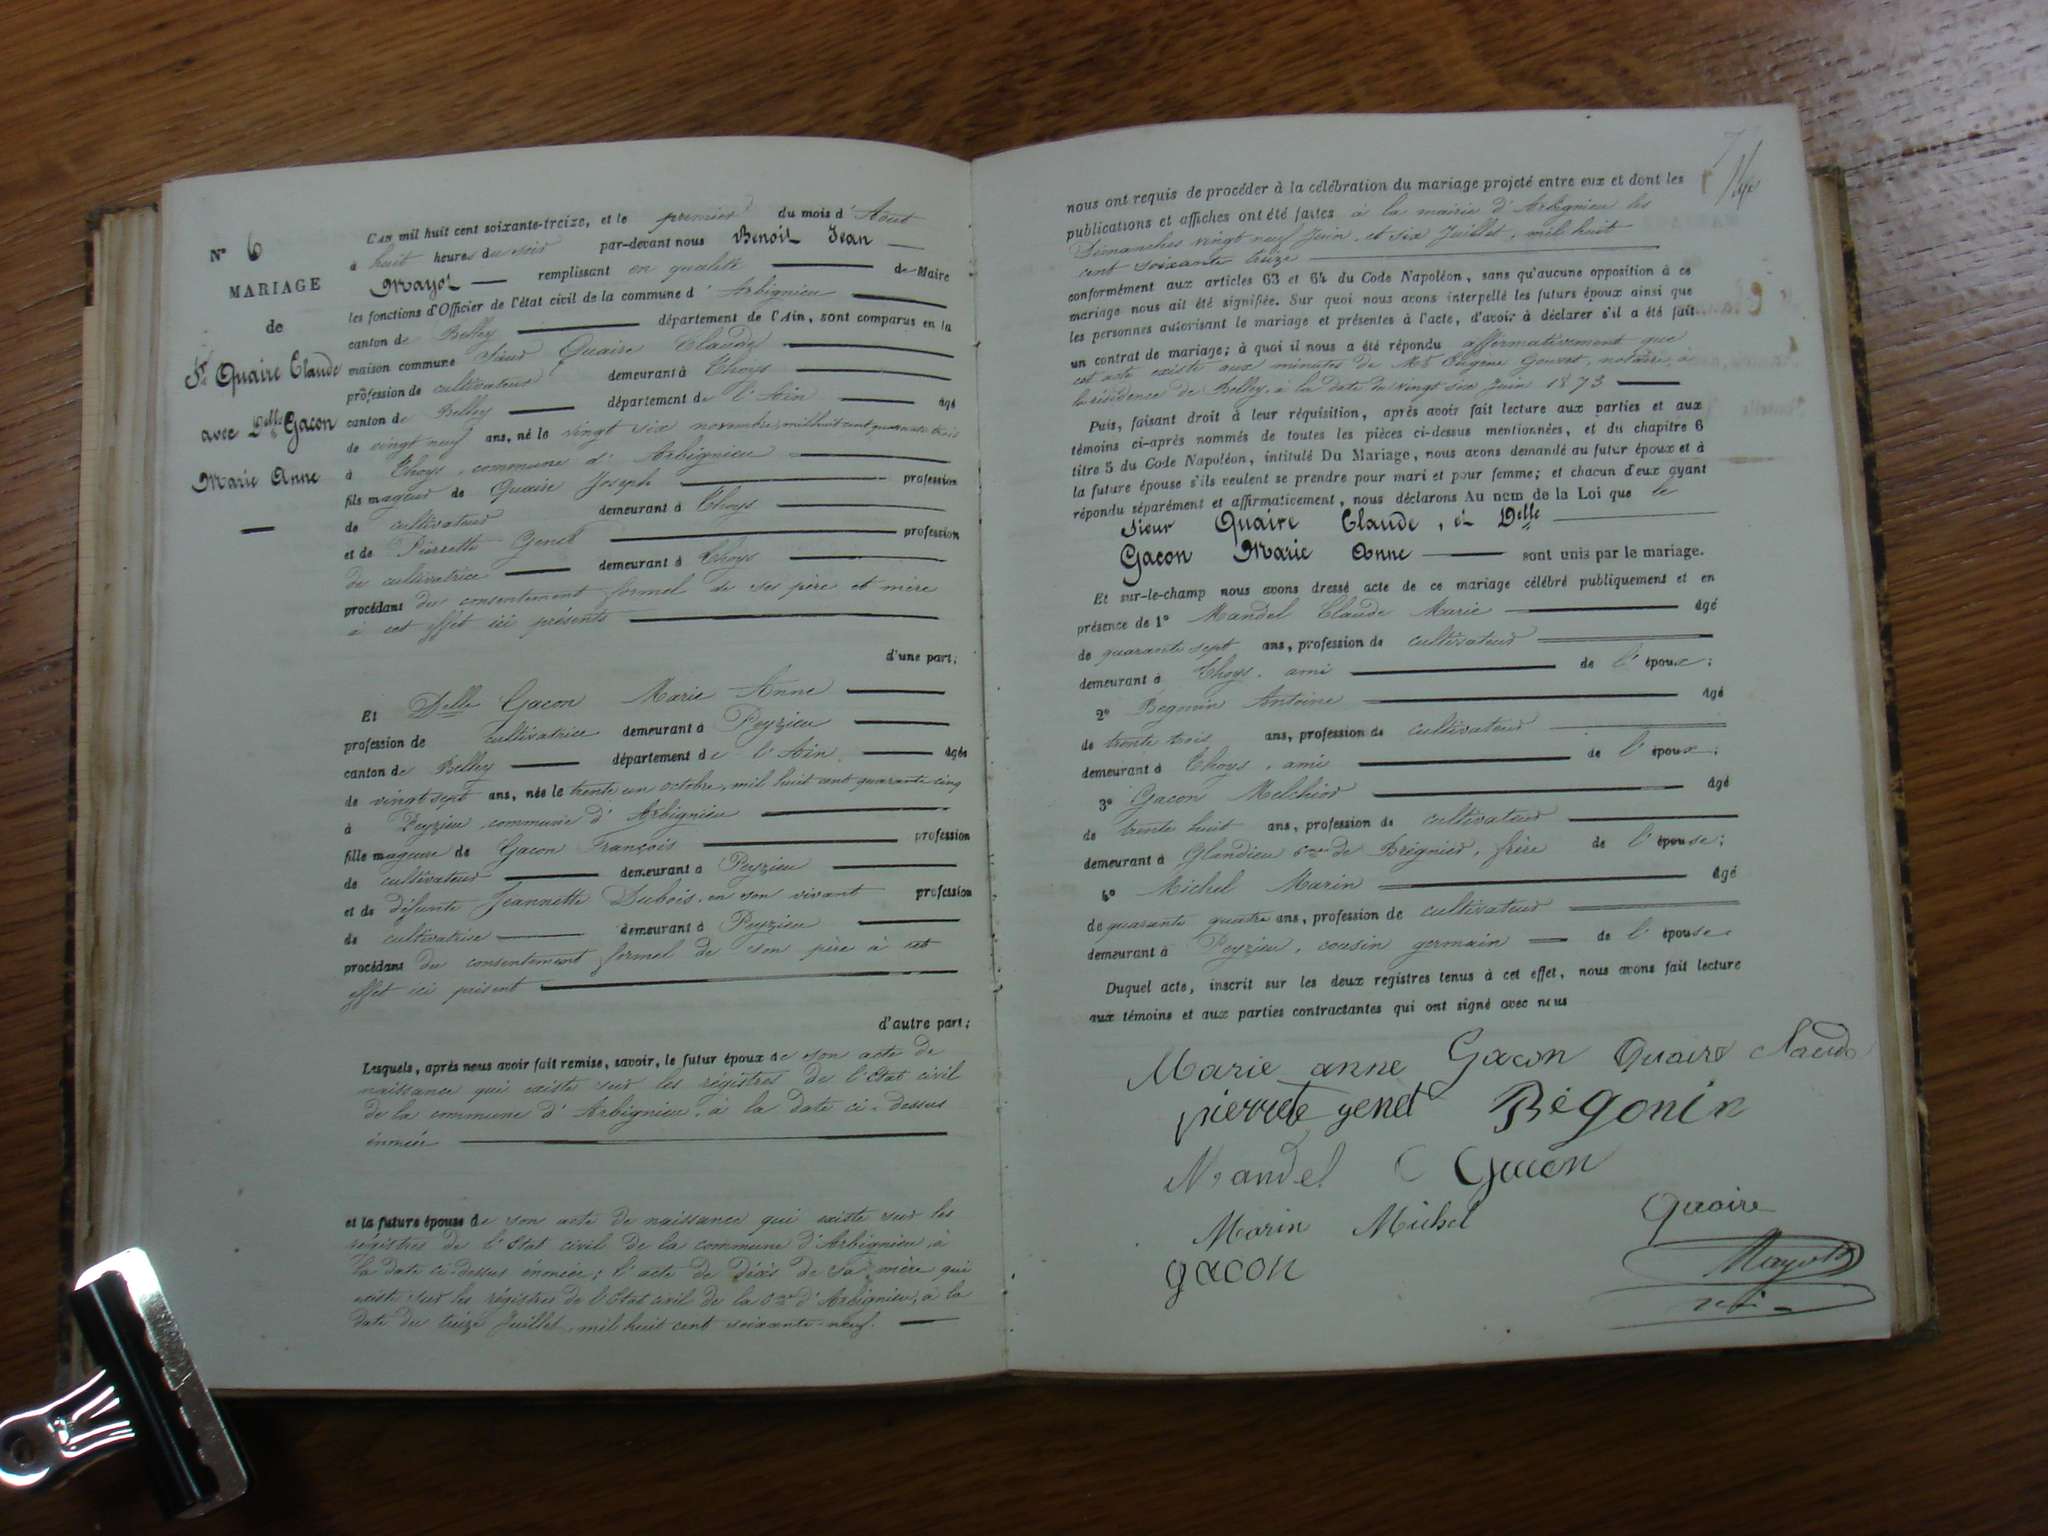 N° 6
MARIAGE
de
Sr Quaire Claude
avec Delle Gacon
Marie Anne
L'AN mil huit cent soixante-treize, et le premier du mois d'Aout
à huit heures du soir par-devant nous Benoit Jean
Mayot remplissant en qualité de Maire
les fonctions d'Officier de l'état civil de la commune d'Arbignieu
canton de Belley département de l'Ain, sont comparus en la
maison commune Sieur Quaire Claude
profession de cultivateur demeurant à Thoys
canton de Belley département de l'Ain âgé
de vingt neuf ans, né le vingt six novembre, mil huit cent quarante trois
à Thoys, commune d'Arbignieu
fils mageur de Quaire Joseph profession
de cultivateur demeurant à Thoys
et de Pierrette Genet profession
de cultivatrice demeurant à Thoys
procédant du consentement formel de ses père et mère
à cet effet ici présents
d'une part;
Et Delle Gacon Marie Anne
profession de cultivatrice demeurant à Peyzieu
canton de Belley département de l'Ain âgée
de vingt sept ans, née le trente un octobre, mil huit cent quarante cinq
à Peyzieu, commune d'Arbignieu
fille mageure de Gacon François profession
de cultivateur demeurant à Peyzieu
et de défunte Jeannette Dubois, en son vivant profession
de cultivatrice demeurant à Peyzieu
procédant du consentement formel de son père à cet
effet ici présent
d'autre part;
Lesquels, après nous avoir fait remise, savoir, le futur époux de son acte de
naissance qui existe sur les régistres de l'Etat civil
de la commune d'Arbignieu, à la date ci-dessus
énoncée
et la future épouse de son acte de naissance qui existe sur les
régistres de l'Etat civil de la commune d'Arbignieu, à
la date ci-dessus énoncée; l'acte de décès de sa mère qui
existe sur les régistres de l'Etat civil de la Cne d'Arbignieu, à la
date du treize Juillet, mil huit cent soixante-neuf.
7
nous ont requis de procéder à la célébration du mariage projeté entre eux et dont les
publications et affiches ont été faites à la mairie d'Arbignieu les
Dimanches vingt neuf Juin, et six Juillet, mil huit
cent soixante treize
conformément aux articles 63 et 64 du Code Napoléon, sans qu'aucune opposition à ce
mariage nous ait été signifiée. Sur quoi nous avons interpellé les futurs époux ainsi que
les personnes autorisant le mariage et présentes à l'acte, d'avoir à déclarer s'il a été fait
un contrat de mariage; à quoi il nous a été répondu affirmativement que
cet acte existe aux minutes de Me Eugène Gouvet, notaire, à
la résidence de Belley, à la date du vingt six Juin 1873
Puis, faisant droit à leur réquisition, après avoir fait lecture aux parties et aux
témoins ci-après nommés de toutes les pièces ci-dessus mentionnées, et du chapitre 6
titre 5 du Code Napoléon, intitulé Du Mariage, nous avons demandé au futur époux et à
la future épouse s'ils veulent se prendre pour mari et pour femme; et chacun d'eux ayant
répondu séparément et affirmativement, nous déclarons Au nom de la Loi que le
Sieur Quaire Claude, et Delle
Gacon Marie Anne sont unis par le mariage.
Et sur-le-champ nous avons dressé acte de ce mariage célébré publiquement et en
présence de 1° Mandel Claude Marie âgé
de quarante sept ans, profession de cultivateur
demeurant à Thoys, ami de l'époux;
2° Begonin Antoine âgé
de trente trois ans, profession de cultivateur
demeurant à Thoys, ami de l'époux;
3° Gacon Melchior âgé
de trente huit ans, profession de cultivateur
demeurant à Glandieu Cne de Brégnier, frère de l'épouse;
4° Michel Marin âgé
de quarante quatre ans, profession de cultivateur
demeurant à Peyzieu, cousin germain de l'épouse.
Duquel acte, inscrit sur les deux registres tenus à cet effet, nous avons fait lecture
aux témoins et aux parties contractantes qui ont signé avec nous
Marie anne Gacon Quaire Claude
pierrete genet Bégonin
Mandel C Gacon
Marin Michel Quaire
gacon Mayot